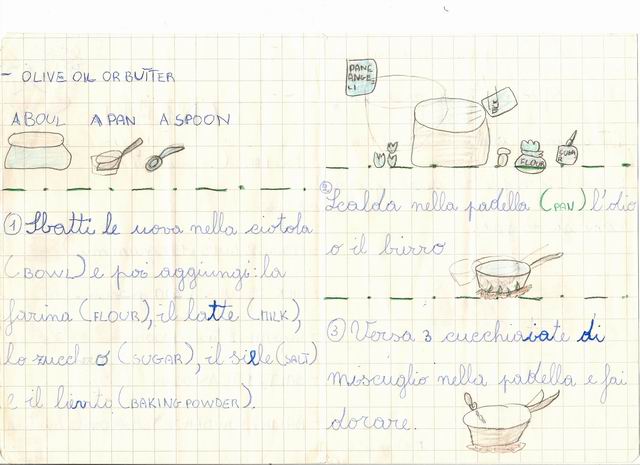 - OLIVE OIL OR BUTTER
A BOUL A PAN A SPOON
① Sbatti le uova nella ciotola
(BOWL) e poi aggiungi: la
farina (FLOUR), il latte (MILK),
lo zucchero (SUGAR), il sale (SALT)
e il lievito (BAKING POWDER).
PANE
ANGE
LI
FLOUR
SUGA
R
② Scalda nella padella (PAN) l'olio
o il burro
③ Versa 3 cucchiaiate di
miscuglio nella padella e fai
dorare.